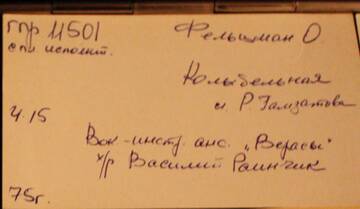 гпр 11501
Фельцман О.
спи исполнит.
Колыбельная
сл. Р. Гамзатова
4.15
Вок.-инстр. анс. „Верасы"
х/р Василий Раинчик
75г.